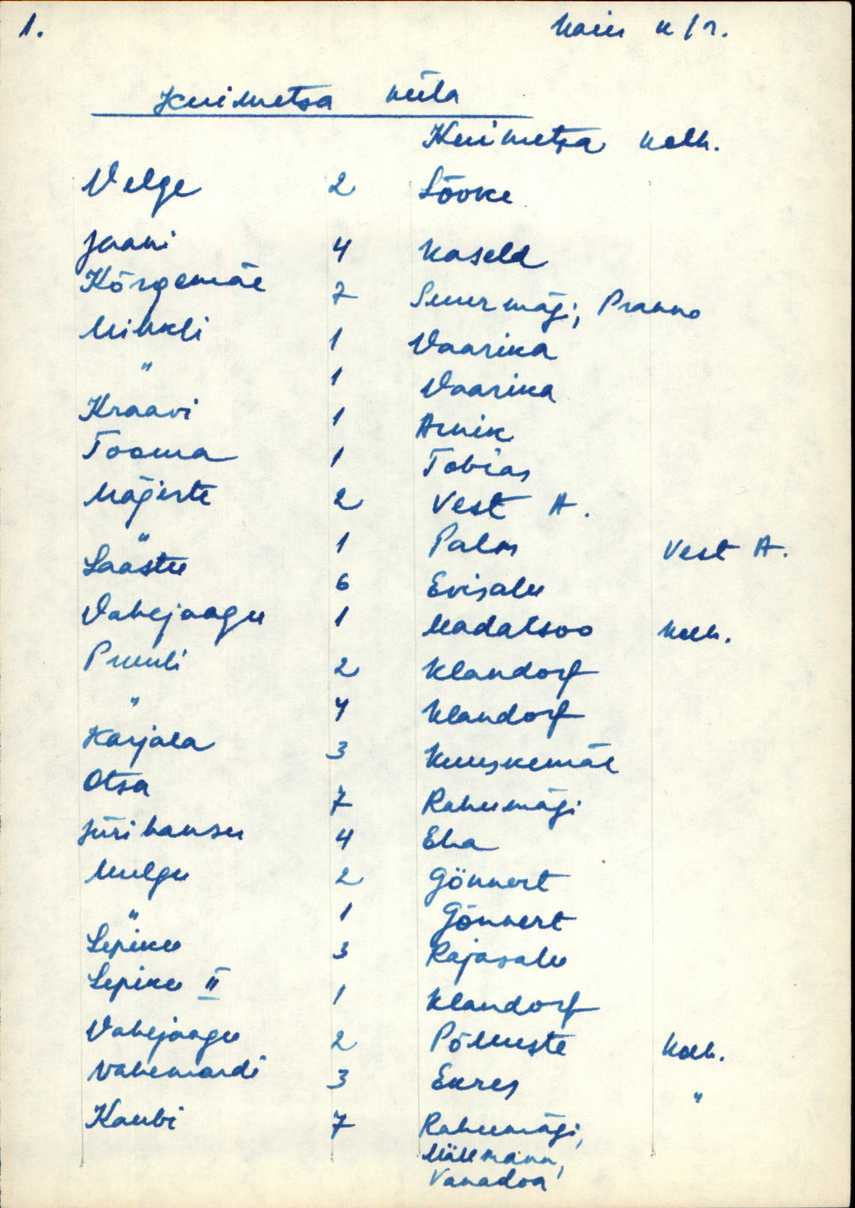 1. Kaiu k/n.
Kuimetsa küla
Kuimetsa kolh.
Velge 2 Lõoke
Jaani 4 Kaseld
Kõrgemäe 7 Suurmägi, Pranno
Mihkli 1 Vaarika
" 1 Vaarika
Kraavi 1 Arnik
Tooma 1 Tobias
Mägiste 2 Vest A.
" 1 Palm Vest A.
Saastu 6 Evisalu
Vahejaagu 1 Madalsoo kolh.
Pruuli 2 Klandorf
" 4 Klandorf
Karjala 3 Kuuskemäe
Otsa 7 Rahumägi
Jürihansu 4 Eha
Mulgu 2 Gönnert
" 1 Gönnert
Lepiku 3 Rajasalu
Lepiku II 1 Klandorf
Vahejaagu 2 Põlluste kolh.
Vahemardi 3 Ekres "
Kaubi 7 Rahumägi,
Vanadoa